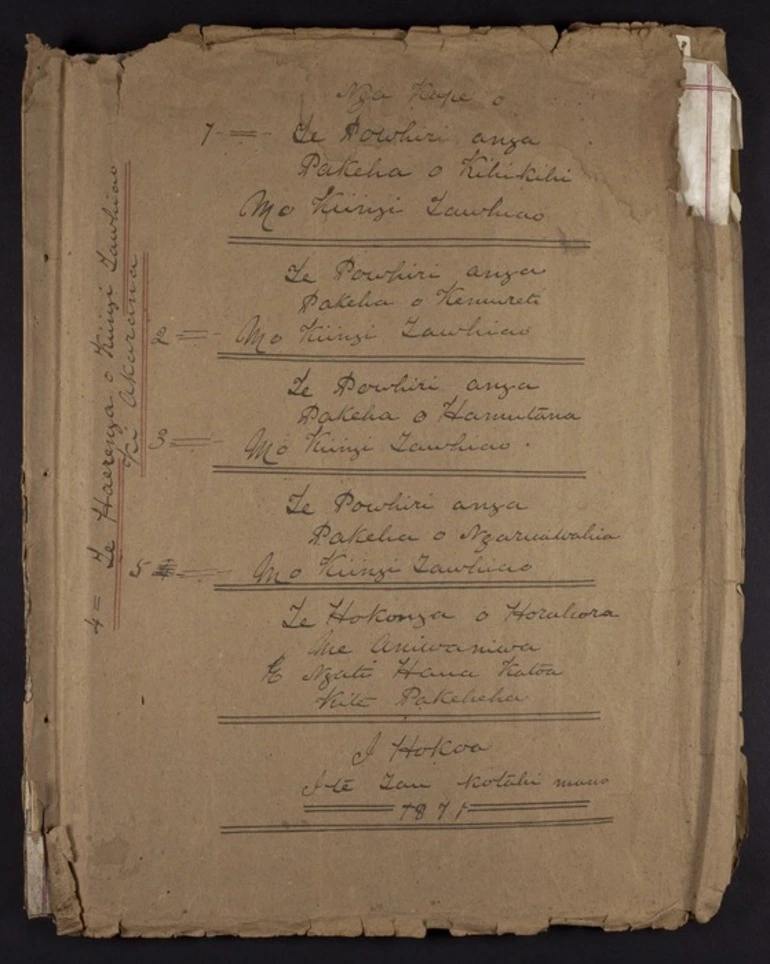 Nga Kape o
1 = Te Powhiri anga
Pakeha o Kihikihi
Mo Kiingi Tawhiao
Te Powhiri anga
Pakeha o Kemureti
2 = Mo Kiingi Tawhiao
Te Powhiri anga
Pakeha o Hamutana
3 = Mo Kiingi Tawhiao.
Te Powhiri anga
Pakeha o Ngaruawahia
5 = Mo Kiingi Tawhiao
Te Hokonga o Horahora
Me Aniwaniwa
E Ngati Haua Katoa
Kite Pakeheha
I Hokoa
I te Tau Kotahi mano
1871
4 = Te Haerenga o Kiingi Tawhiao
Ki Akarana